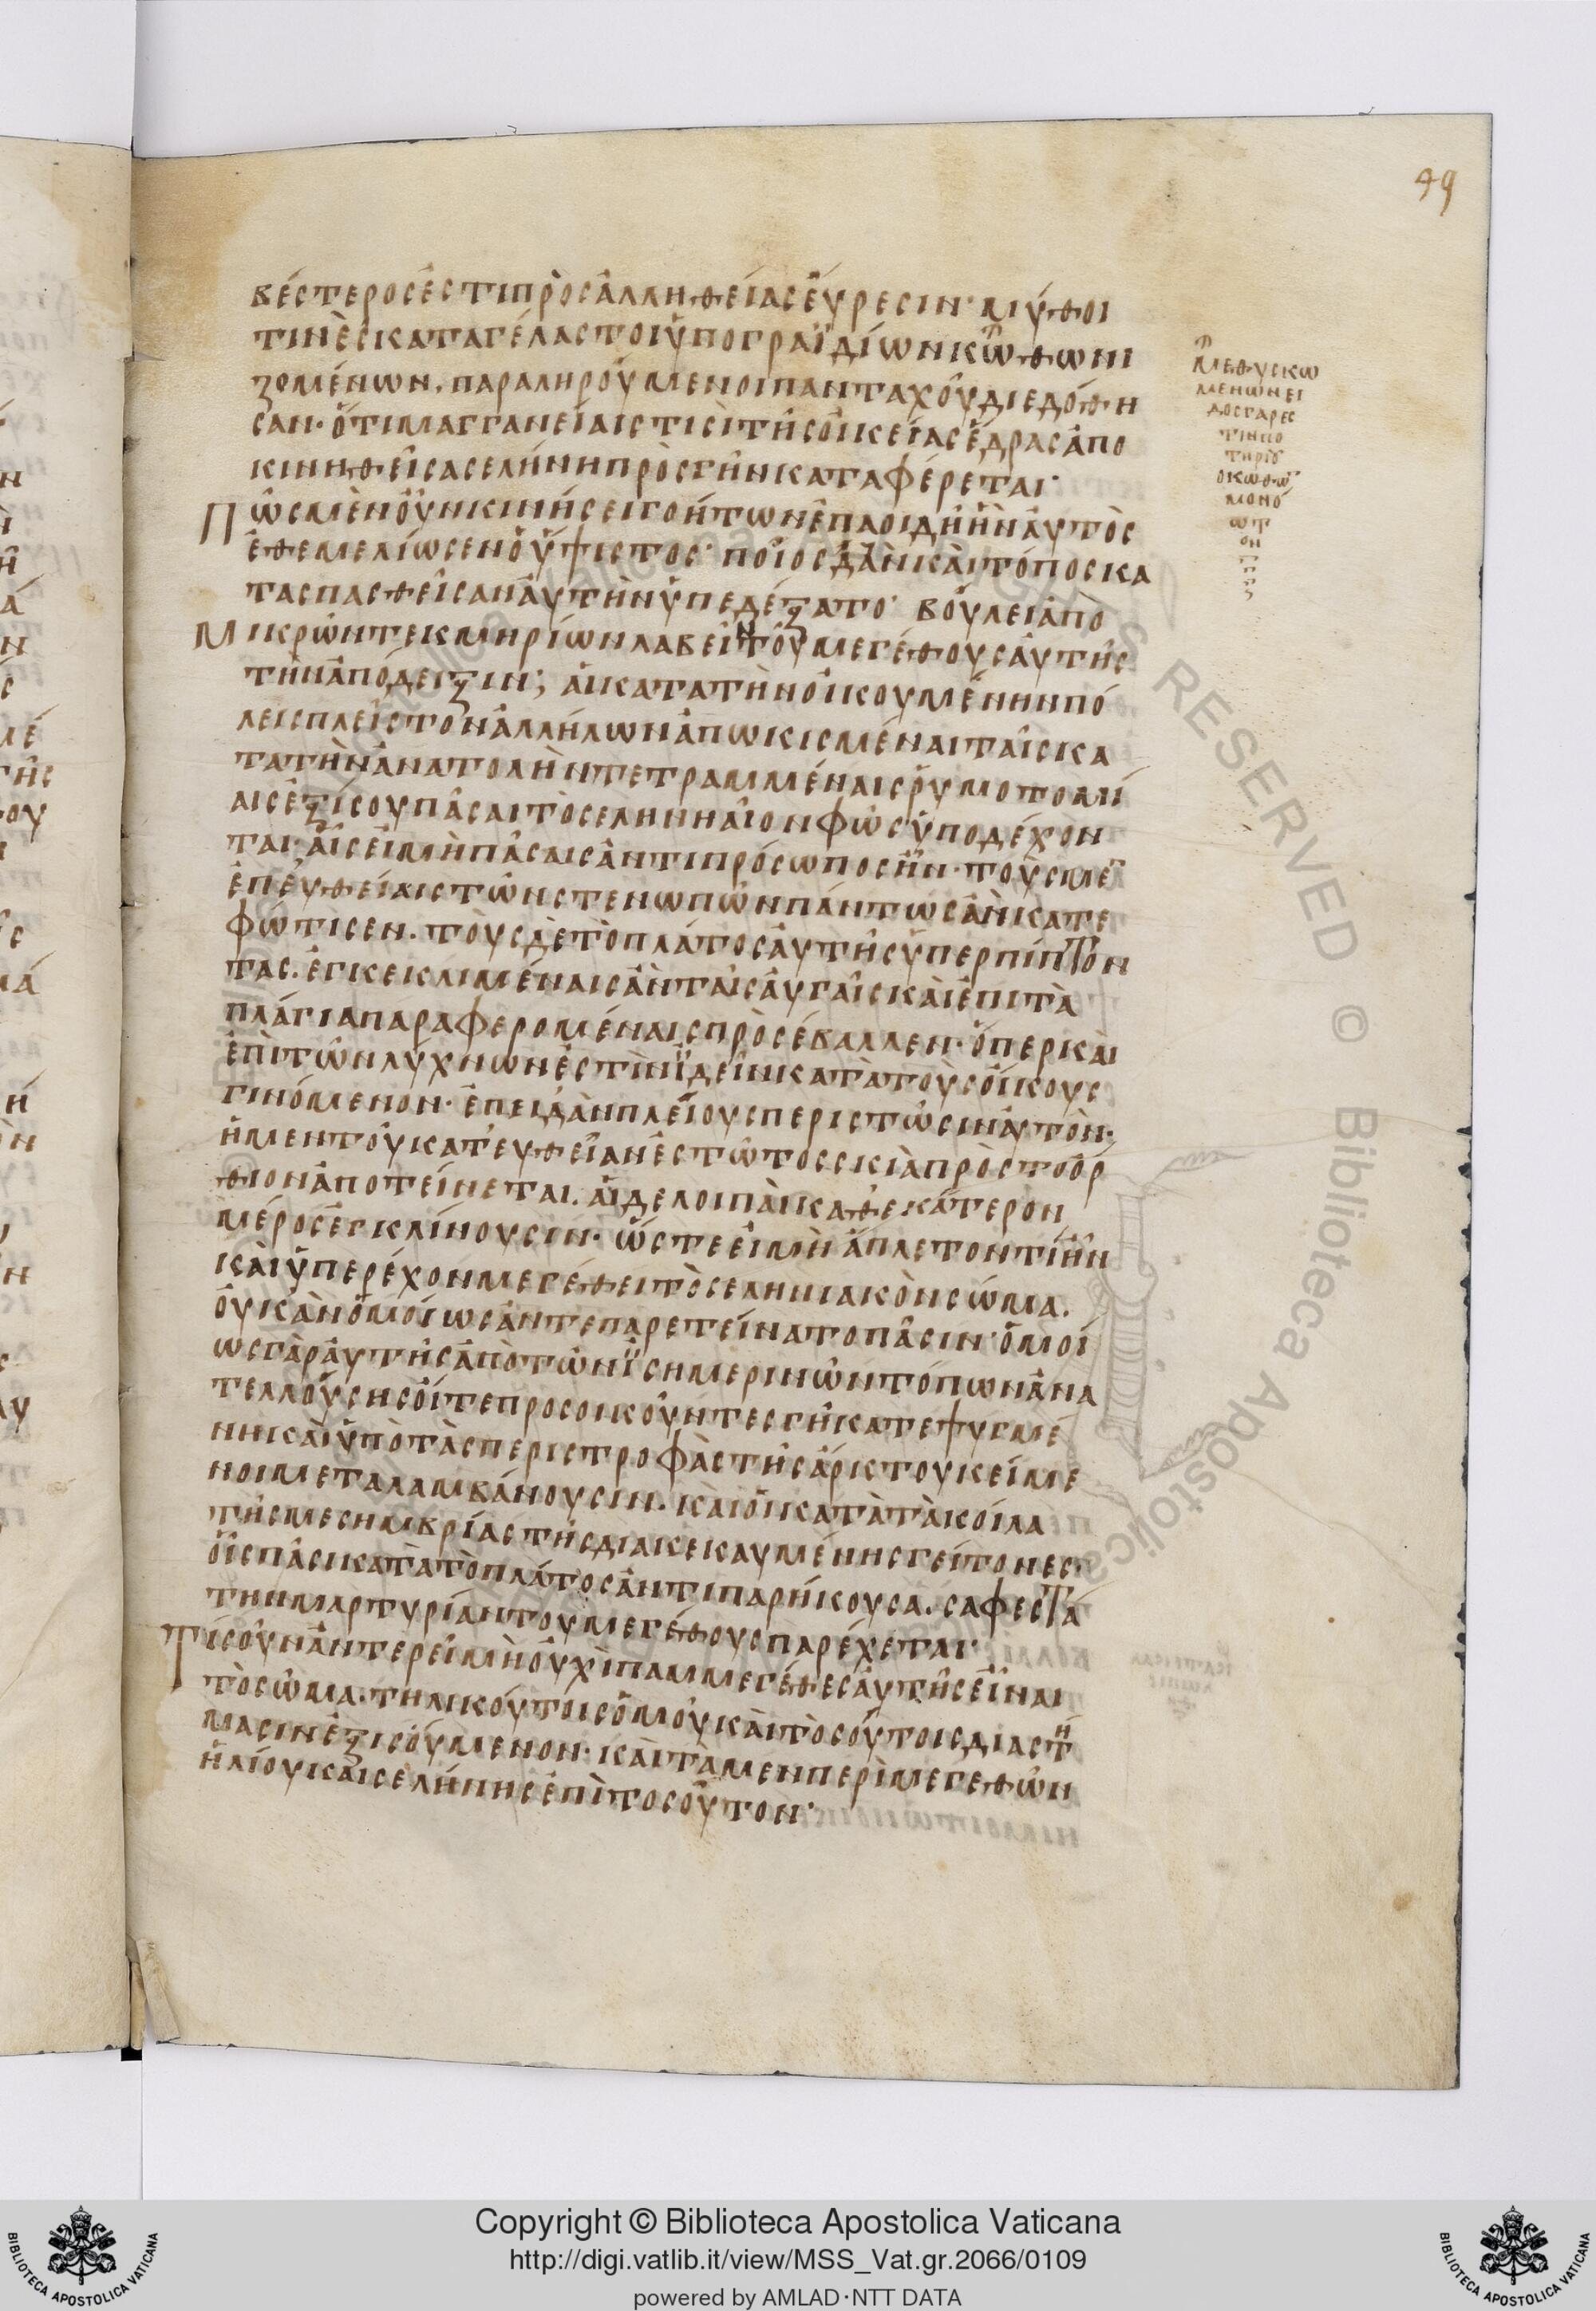 49
βέστεροσ ἐστι πρὸσ ἀλληθείασ ἕυρεσιν· μύθοι
τινὲσ καταγέλαστοι ὑπο γραϊδίων κωθωνι
ζομένων, παραληρούμενοι πανταχοῦ διεδόθη
σαν· ὅτι μαγγανείαισ τισὶ τῆσ ὀικείασ ἕδρασ ἀπο
κινηθεῖσα σελήνη πρὸσ γῆν καταφέρεται·
Πῶσ μὲν ὀῦν κινήσει γοήτων ἐπαοιδὴ ἣν ἀυτὸσ
ἐθεμελίωσεν ὁ ὕψιστοσ· ποῖοσ δ ἂν κὰι τόποσ κα
τασπασθεῖσαν ἀυτὴν ὑπεδέξατο· βούλει ἀπὸ
Μικρῶν τεκμηρίων λαβεῖν τοῦ μεγέθουσ ἀυτῆσ
τὴν ἀπόδειξιν; ἁι κατα τὴν ὀικουμένην πό
λεισ πλεῖστον ἀλλήλων ἀπωκισμέναι ταῖσ κα
τα τὴν ἀνατολὴν τετραμμέναισ ῥυμοτομί
αισ ἐξίσου πᾶσαι τὸ σεληνηαῖον φῶσ ὑποδέχον
ται· ἇισ ἐι μὴ πάσαισ ἀντιπρόσωποσ ἦν· τοὺσ μεν
ἐπ ἐυθείαισ τῶν στενωπῶν πάντωσ ἂν κατε
φώτισεν. τοὺσ δὲ τὸ πλάτοσ ἀυτῆσ ὑπερπίπτον
τασ. ἐγκεκλιμέναισ ἂν ταῖσ ἀυγαῖσ κὰι ἐπι τὰ
πλάγια παραφερομέναισ προσέβαλλεν· ὅπερ κὰι
ἐπὶ τῶν λύχνων ἐστὶν ϊδεῖν κατὰ τοὺσ ὀίκουσ
γινόμενον· ἐπειδὰν πλείουσ περιστῶσιν ἀυτὸν·
ἡ μεν τοῦ κατ ἐυθεῖαν ἑστῶτοσ σκιὰ πρὸσ το ὄρ
θιον ἀποτείνεται. ἁι δε λοιπὰι καθ εκάτερον
μέροσ ἐγκλίνουσιν· ὥστε ἐι μὴ ἄπλετον τί ἦν
κὰι ὑπερέχον μεγέθει τὸ σεληνιακὸν σώμα.
ὀυκ ὰν ὁμοίωσ ἀντεπαρετείνατο πᾶσιν· ὁμοί
ωσ γὰρ ἀυτῆσ ἀπὸ τῶν ϊσημερινῶν τόπων ἀνα
τελλούσησ ὁίτε προσοικοῦντεσ γῆ κατεψυγμέ
νη κὰι ὑπὸ τὰσ περιστροφὰσ τῆσ ἄρκτου κείμε
νοι μεταλαμβάνουσιν. κὰι ὁι κατὰ τὰ κοίλα
τῆσ μεσημβρίασ τῆσ διακεκαυμένησ γείτονεσ·
ὁῖσ πᾶσι κατὰ τὸ πλάτοσ ἀντιπαρήκουσα. σαφεστά
την μαρτυρίαν του μεγέθουσ παρέχεται·
Τίσ ὀῦν ἀντερεῖ μὴ ὀυχὶ παμμεγέθεσ ἀυτῆσ ἐῖναι
τὸ σῶμα. τηλικούτοισ ὁμοῦ κὰι τοσούτοισ διαστή
μασιν ἐξισούμενον· κὰι τὰ μεν περὶ μεγεθῶν
ἡλίου κὰι σελήνησ ἐπὶ τοσοῦτον·
μεθυσκω
μενων ει
δοσ γαρ εσ
τιν πο
τηριου
ο κωθων
Copyright © Biblioteca Apostolica Vaticana
http://digi.vatlib.it/view/MSS_Vat.gr.2066/0109
powered by AMLAD·NTT DATA
BIBLIOTECA APOSTOLICA VATICANA
BIBLIOTECA APOSTOLICA VATICANA